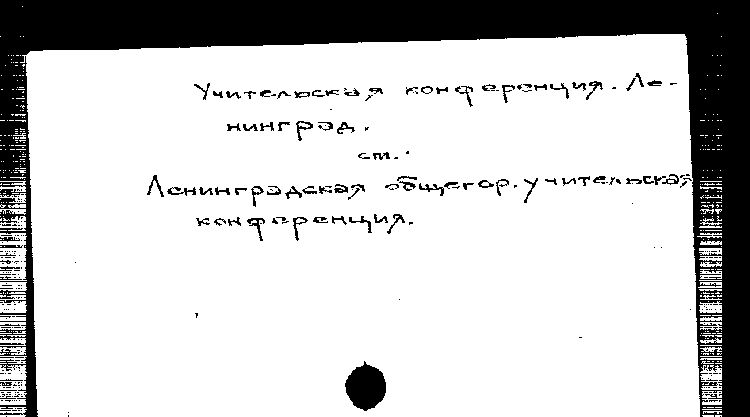 Учительская конференция. Ле-
нинград.
см.
Ленинградская общегор. учительская
конференция.